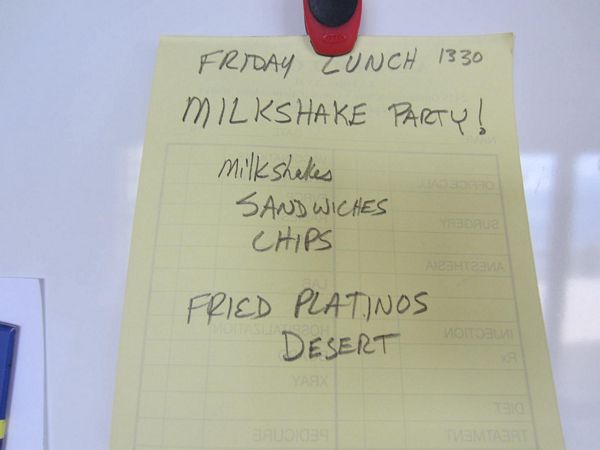 FRIDAY LUNCH 1330
MILKSHAKE PARTY!
Milkshakes
SANDWICHES
CHIPS
FRIED PLATINOS
DESERT
OFFICE CALL
SURGERY
ANESTHESIA
LAB
HOSPITALIZATION
INJECTION
Rx
XRAY
DIET
PEDICURE
TREATMENT